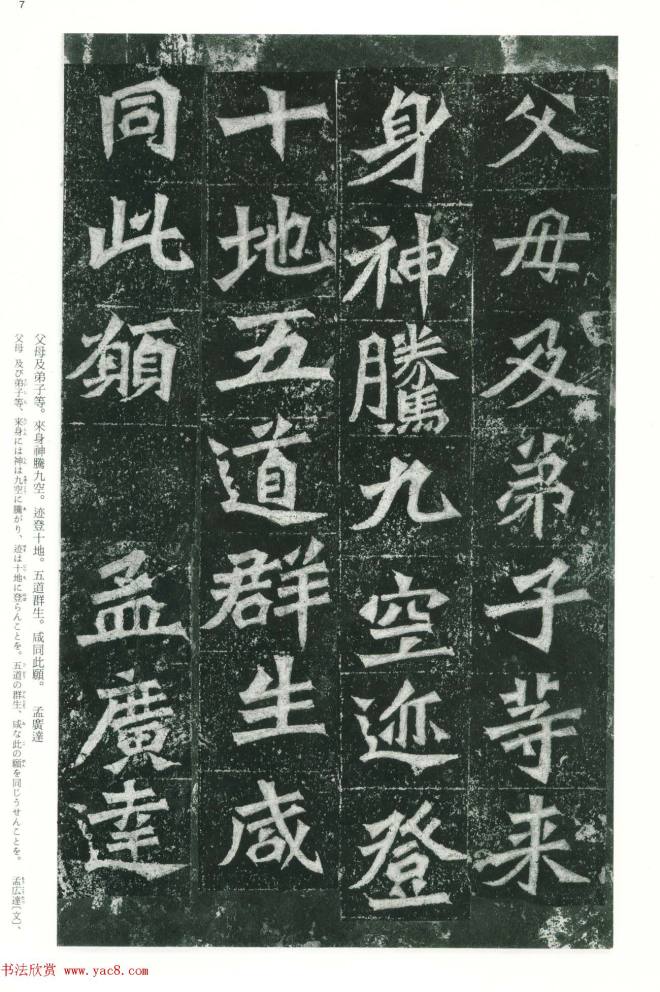 7
父母及弟子等来
身神騰九空迹登
十地五道群生咸
同此願 孟廣達
父母及弟子等。來身神騰九空。迹登十地。五道群生。咸同此願。 孟廣達
父母 及び弟子等、來身には神は九空に騰がり、迹は十地に登らんことを。五道の群生、咸な此の願を同じうせんことを。 孟広達〔文〕、
书法欣赏 www.yac8.com